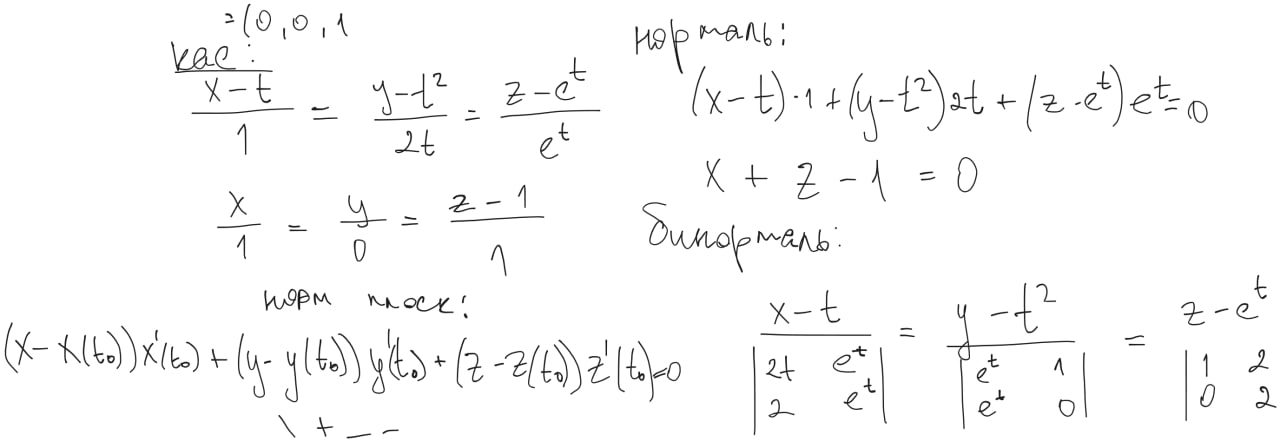 =(0,0,1
кас:
(x-t)/1 = (y-t²)/2t = (z-e^t)/e^t
x/1 = y/0 = (z-1)/1
норм плоск:
(x-x(t₀))x'(t₀)+(y-y(t₀))y'(t₀)+(z-z(t₀))z'(t₀)=0
\ + _ _
нормаль:
(x-t)·1+(y-t²)2t+(z-e^t)e^t=0
x + z - 1 = 0
бинормаль:
(x-t)/|2t e^t; 2 e^t| = (y-t²)/|e^t 1; e^t 0| = (z-e^t)/|1 2; 0 2|